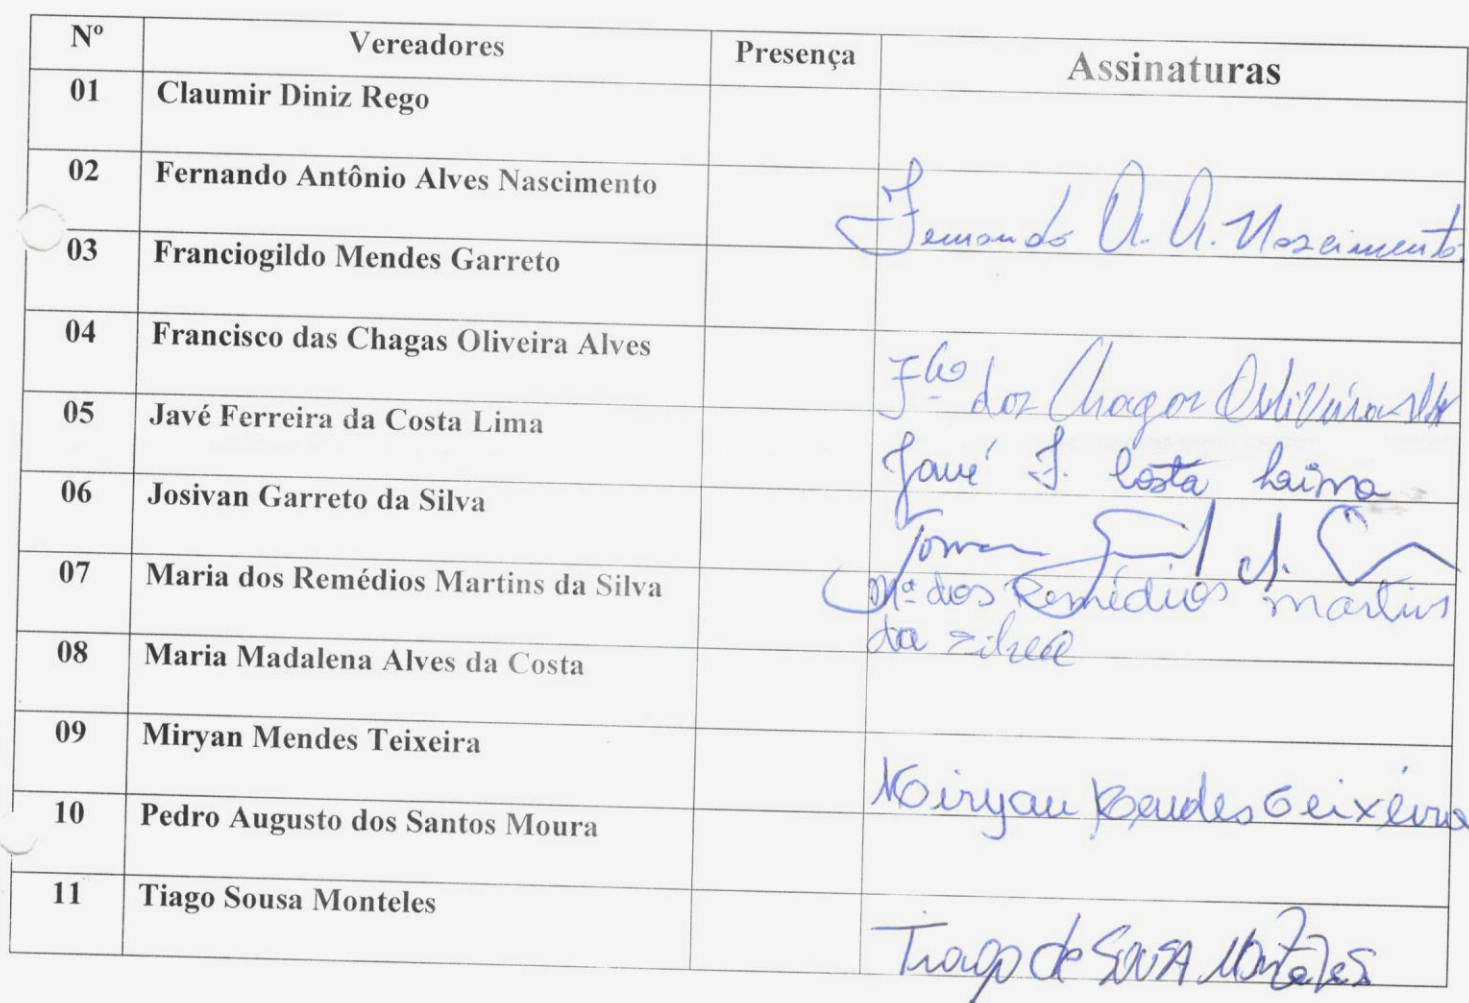 Nº Vereadores Presença Assinaturas
01 Claumir Diniz Rego
02 Fernando Antônio Alves Nascimento Fernando A. A. Nascimento
03 Franciogildo Mendes Garreto
04 Francisco das Chagas Oliveira Alves Fco das Chagas Oliveira
05 Javé Ferreira da Costa Lima Javé F. Costa Lima
06 Josivan Garreto da Silva
07 Maria dos Remédios Martins da Silva Mª dos Remédios Martins
da Silva
08 Maria Madalena Alves da Costa
09 Miryan Mendes Teixeira Miryan Mendes Teixeira
10 Pedro Augusto dos Santos Moura
11 Tiago Sousa Monteles Tiago de Sousa Monteles